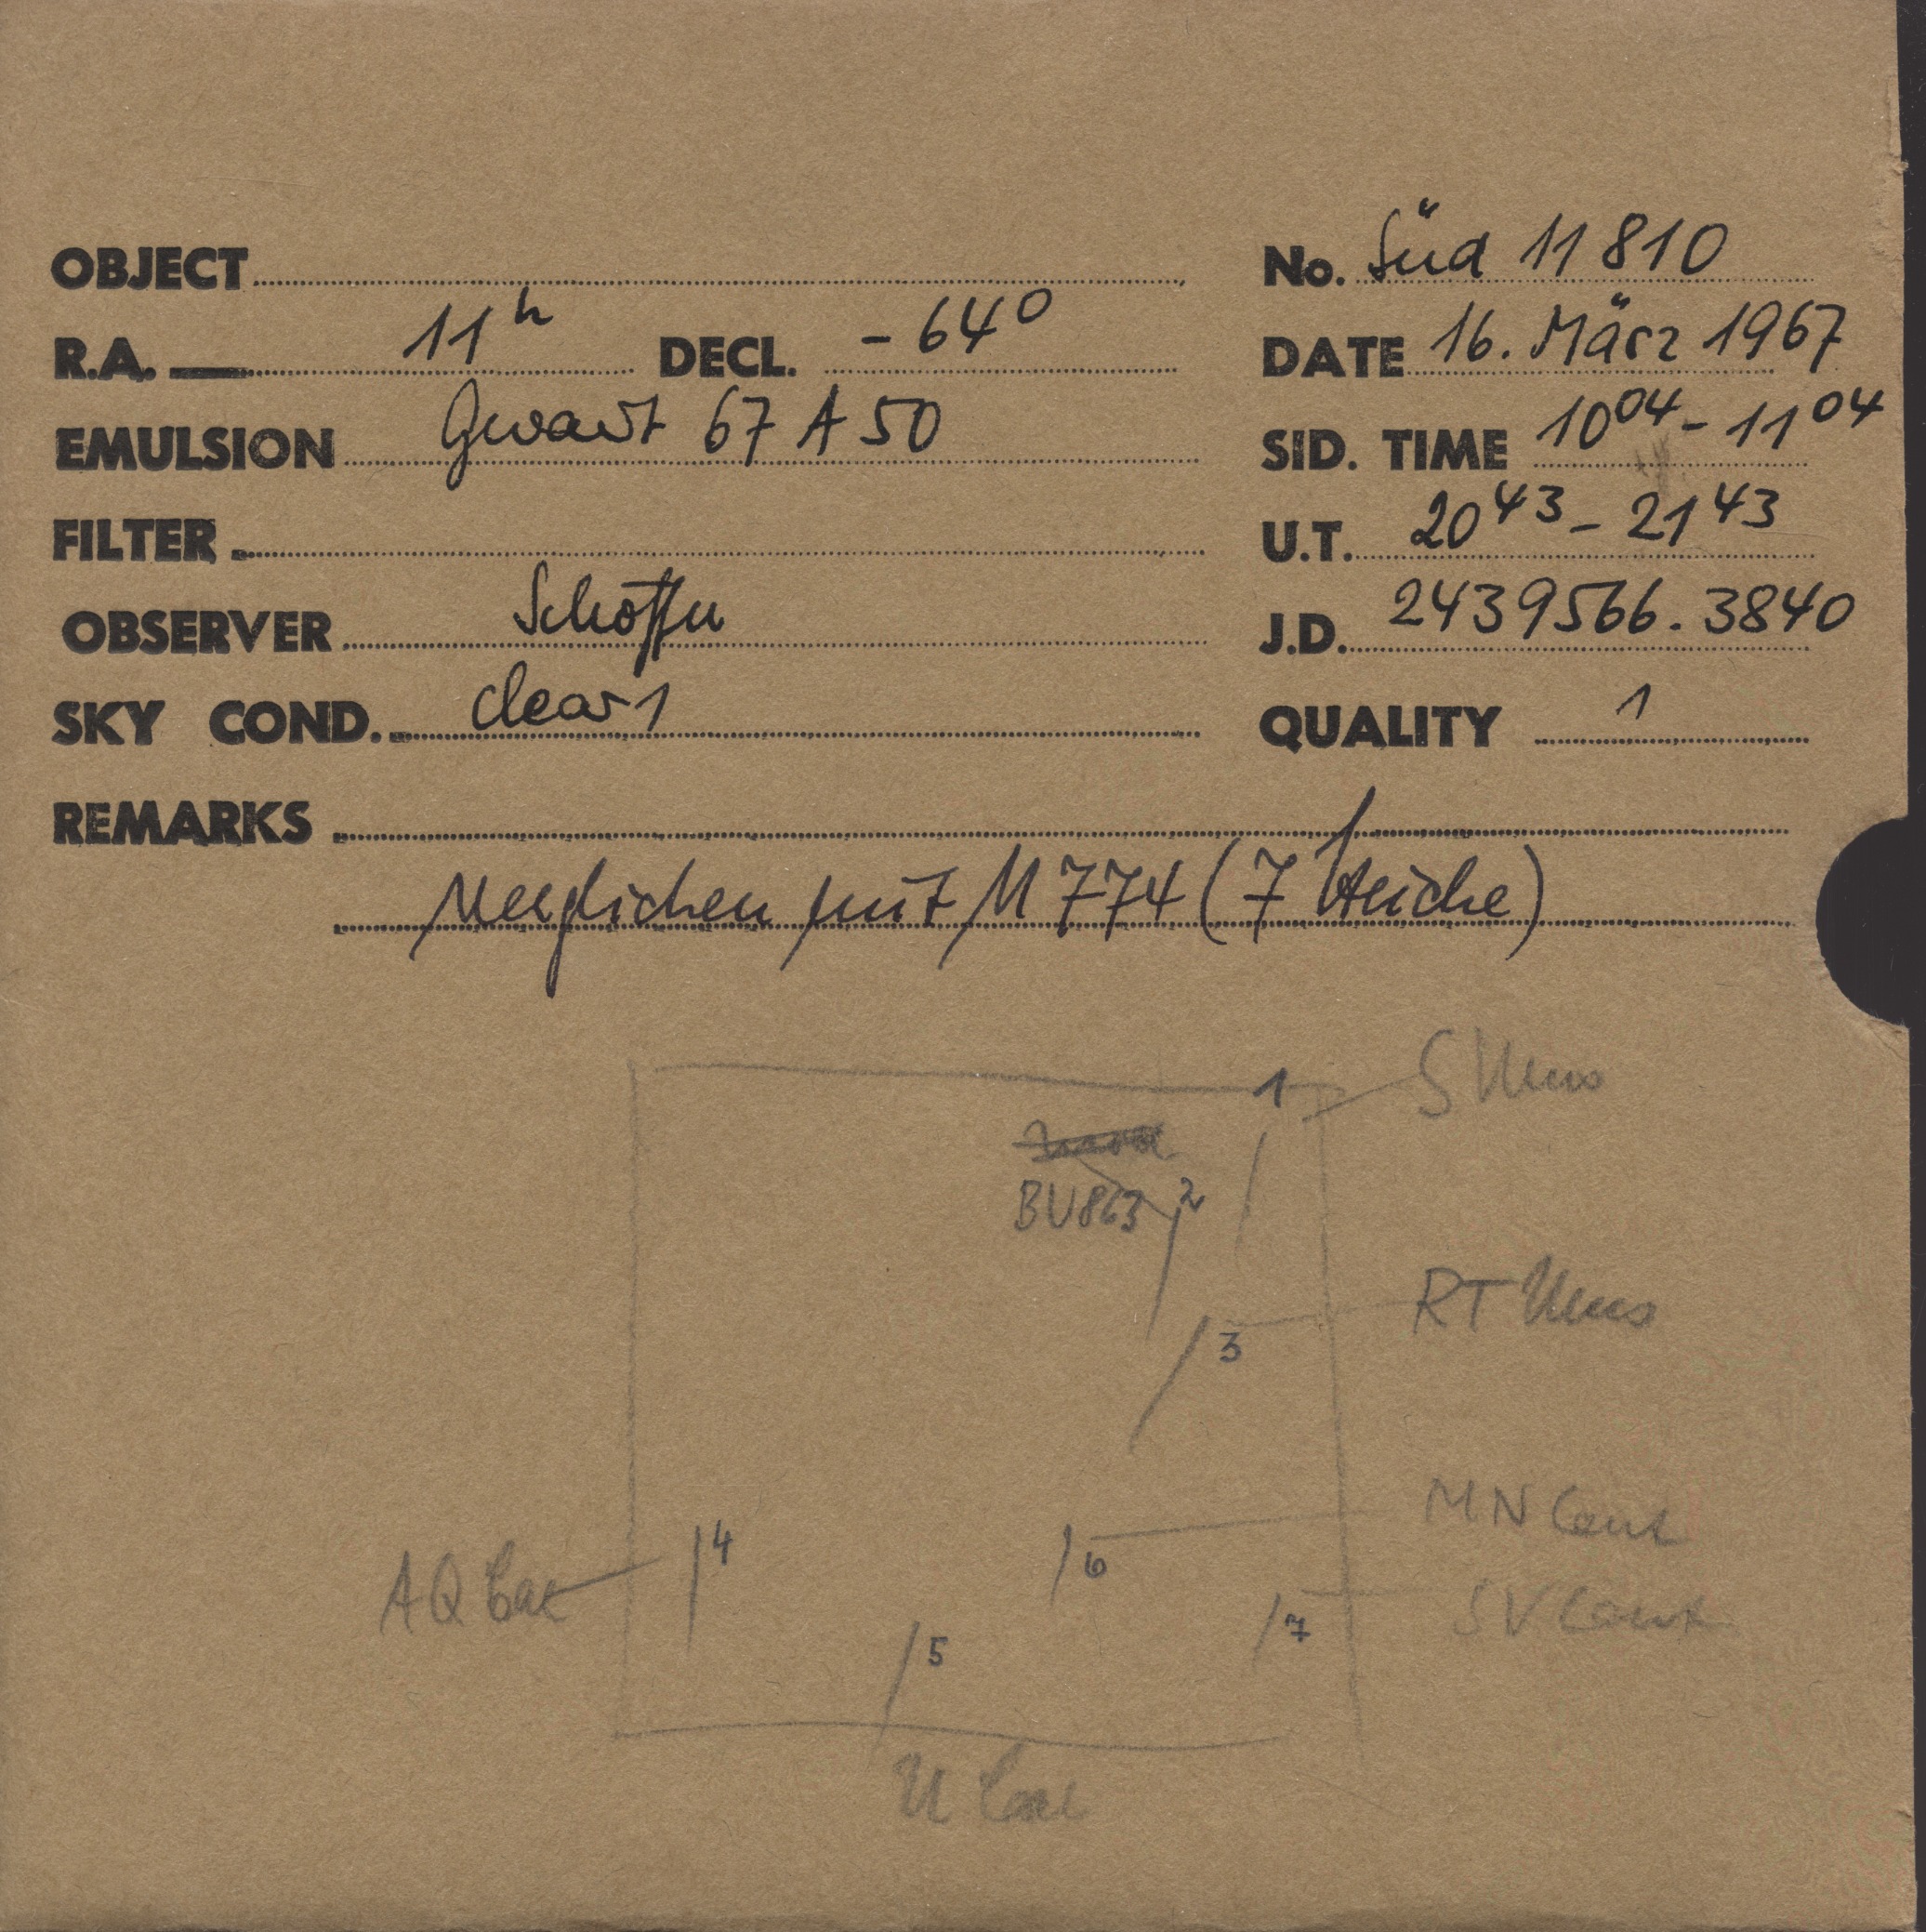 OBJECT
No. Süd 11 810
R.A. 11h DECL. -64°
DATE 16. März 1967
EMULSION Gevaert 67 A 50
SID. TIME 10 04 - 11 04
FILTER
U.T. 20 43 - 21 43
OBSERVER Schöffel
J.D. 2439566.3840
SKY COND. clear 1
QUALITY 1
REMARKS
Verglichen mit M 774 (7 Striche)
1 S Mus
BV 863 2
RT Mus
3
MN Cent
AQ Car 4
6
SV Cent
7
5
U Car